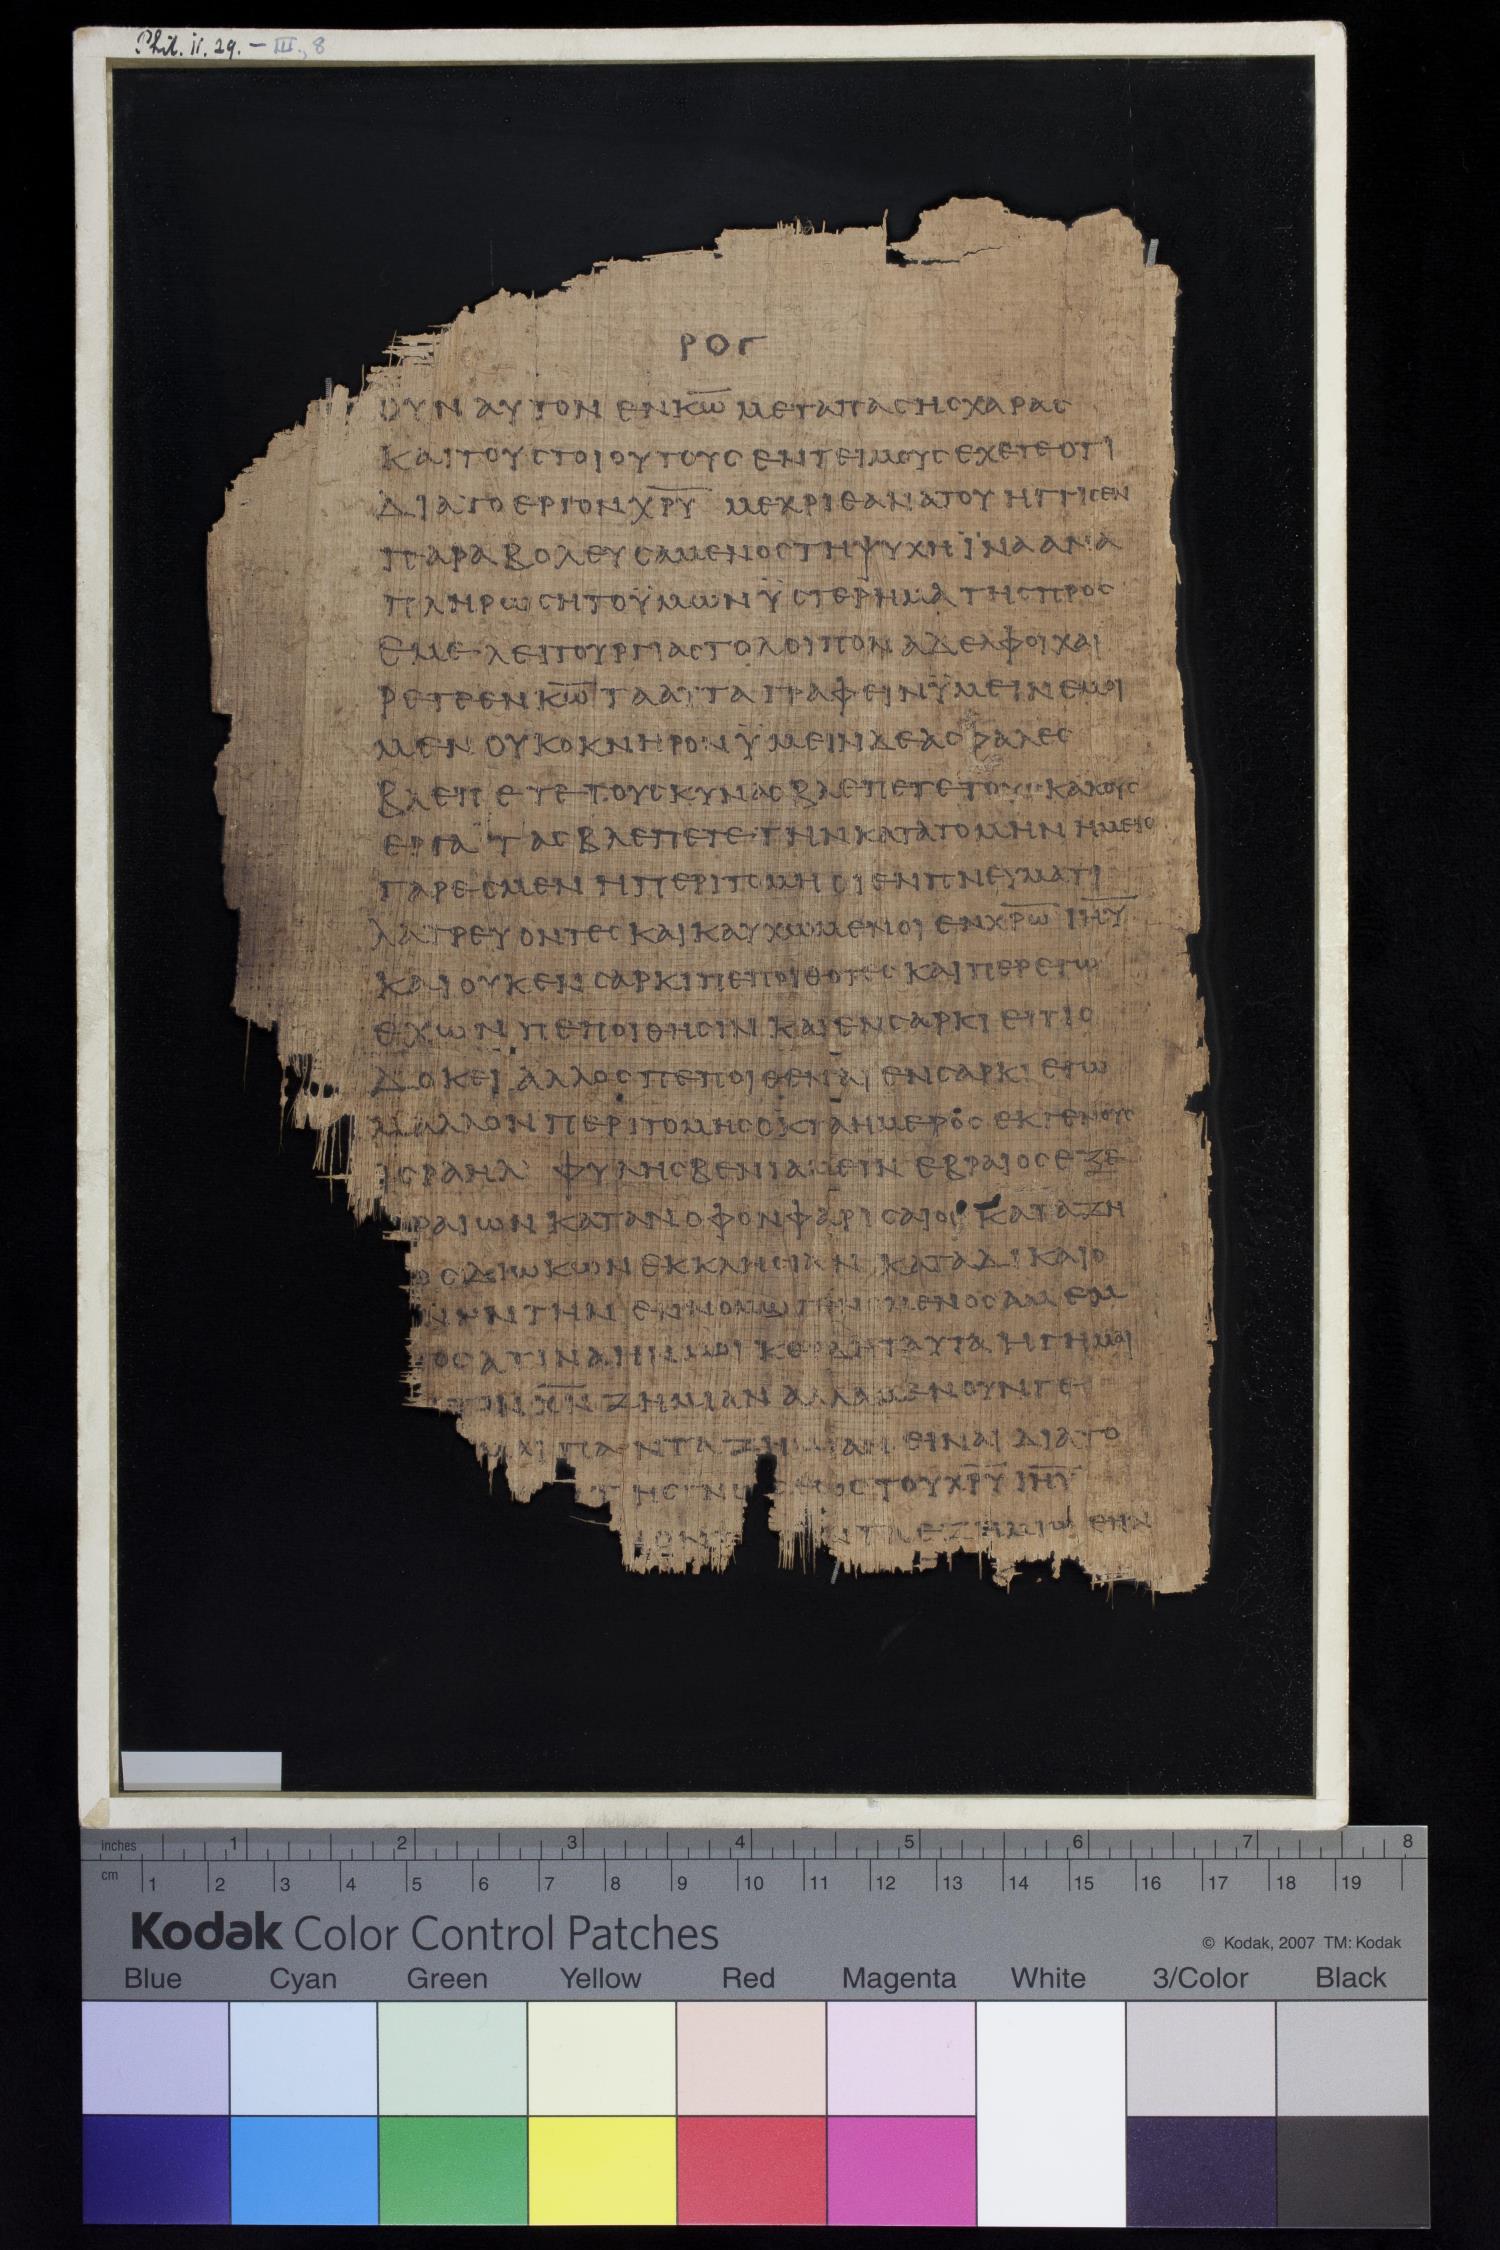 Phil. ii. 29. – III, 8
ΡΟΓ
ΟΥΝ ΑΥΤΟΝ ΕΝ Κ̅Ω̅ ΜΕΤΑ ΠΑΣΗΣ ΧΑΡΑΣ
ΚΑΙ ΤΟΥΣ ΤΟΙΟΥΤΟΥΣ ΕΝΤΕΙΜΟΥΣ ΕΧΕΤΕ ΟΤΙ
ΔΙΑ ΤΟ ΕΡΓΟΝ Χ̅Ρ̅Υ̅ ΜΕΧΡΙ ΘΑΝΑΤΟΥ ΗΓΓΙΣΕΝ
ΠΑΡΑΒΟΛΕΥΣΑΜΕΝΟΣ ΤΗ ΨΥΧΗ ΪΝΑ ΑΝΑ
ΠΛΗΡΩΣΗ ΤΟ ΫΜΩΝ ΫΣΤΕΡΗΜΑ ΤΗΣ ΠΡΟΣ
ΕΜΕ ΛΕΙΤΟΥΡΓΙΑΣ ΤΟ ΛΟΙΠΟΝ ΑΔΕΛΦΟΙ ΧΑΙ
ΡΕΤΕ ΕΝ Κ̅Ω̅ ΤΑ ΑΥΤΑ ΓΡΑΦΕΙΝ ΫΜΕΙΝ ΕΜΟΙ
ΜΕΝ ΟΥΚ ΟΚΝΗΡΟΝ ΫΜΕΙΝ ΔΕ ΑΣΦΑΛΕΣ
ΒΛΕΠΕΤΕ ΤΟΥΣ ΚΥΝΑΣ ΒΛΕΠΕΤΕ ΤΟΥΣ ΚΑΚΟΥΣ
ΕΡΓΑΤΑΣ ΒΛΕΠΕΤΕ ΤΗΝ ΚΑΤΑΤΟΜΗΝ ΗΜΕΙΣ
ΓΑΡ ΕΣΜΕΝ Η ΠΕΡΙΤΟΜΗ ΟΙ ΕΝ ΠΝΕΥΜΑΤΙ
ΛΑΤΡΕΥΟΝΤΕΣ ΚΑΙ ΚΑΥΧΩΜΕΝΟΙ ΕΝ Χ̅Ρ̅Ω̅ Ι̅Η̅Υ̅
ΚΑΙ ΟΥΚ ΕΝ ΣΑΡΚΙ ΠΕΠΟΙΘΟΤΕΣ ΚΑΙΠΕΡ ΕΓΩ
ΕΧΩΝ ΠΕΠΟΙΘΗΣΙΝ ΚΑΙ ΕΝ ΣΑΡΚΙ ΕΙ ΤΙΣ
ΔΟΚΕΙ ΑΛΛΟΣ ΠΕΠΟΙΘΕΝΑΙ ΕΝ ΣΑΡΚΙ ΕΓΩ
ΜΑΛΛΟΝ ΠΕΡΙΤΟΜΗΣ ΟΚΤΑΗΜΕΡΟΣ ΕΚ ΓΕΝΟΥΣ
ΙΣΡΑΗΛ ΦΥΛΗΣ ΒΕΝΙΑΜΕΙΝ ΕΒΡΑΙΟΣ ΕΞ Ε
ΡΑΙΩΝ ΚΑΤΑ ΝΟΦΟΝ ΦΑΡΙΣΑΙΟΣ ΚΑΤΑ ΖΗ
ΟΣ ΔΙΩΚΩΝ ΕΚΚΛΗΣΙΑΝ ΚΑΤΑ ΔΙΚΑΙΟ
ΝΗΝ ΤΗΝ ΕΝ ΝΟΜΩ ΓΕΝΟΜΕΝΟΣ ΑΜΕΜ
ΤΟΣ ΑΤΙΝΑ ΗΝ ΜΟΙ ΚΕΡΔΗ ΤΑΥΤΑ ΗΓΗΜΑΙ
ΤΟΝ Χ̅Ν̅ ΖΗΜΙΑΝ ΑΛΛΑ ΜΕΝΟΥΝΓΕ
ΜΑΙ ΠΑΝΤΑ ΖΗΜΙΑΝ ΕΙΝΑΙ ΔΙΑ ΤΟ
ΤΗΣ ΓΝΩΣΕΩΣ ΤΟΥ Χ̅Ρ̅Υ̅ Ι̅Η̅Υ̅
ΕΖΗΜΙΩΘΗΝ
inches 1 2 3 4 5 6 7 8
cm 1 2 3 4 5 6 7 8 9 10 11 12 13 14 15 16 17 18 19
Kodak Color Control Patches
© Kodak, 2007 TM: Kodak
Blue Cyan Green Yellow Red Magenta White 3/Color Black